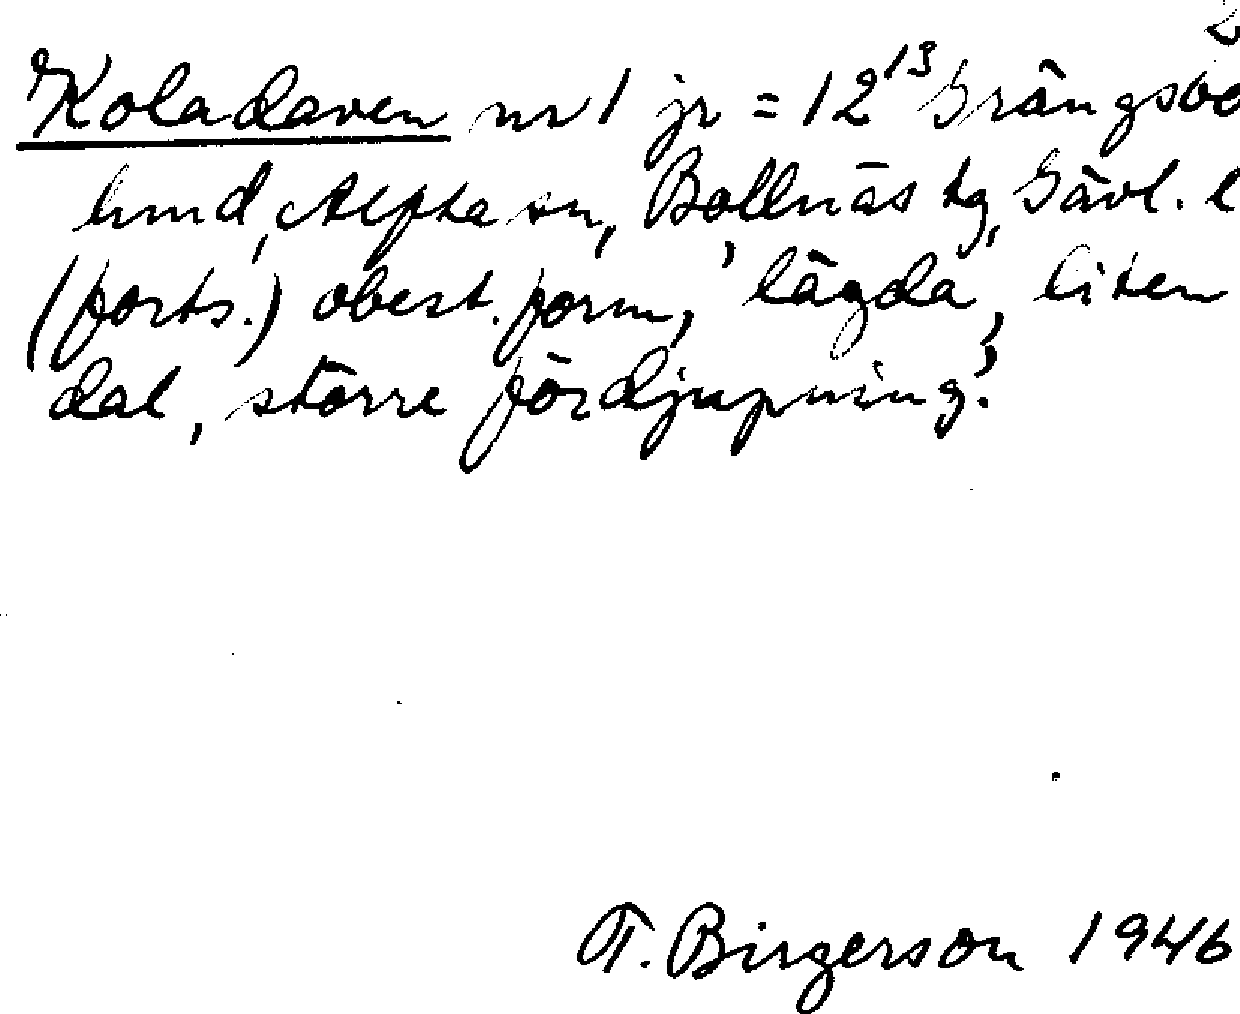 2
Koladaven nr 1 jr = 12¹³ Grängsbo
lund, Alfta sn, Bollnäs tg, Gävl. l
(forts.) obest. form, 'lägda, liten
dal, större fördjupning'.
T. Birgerson 1946